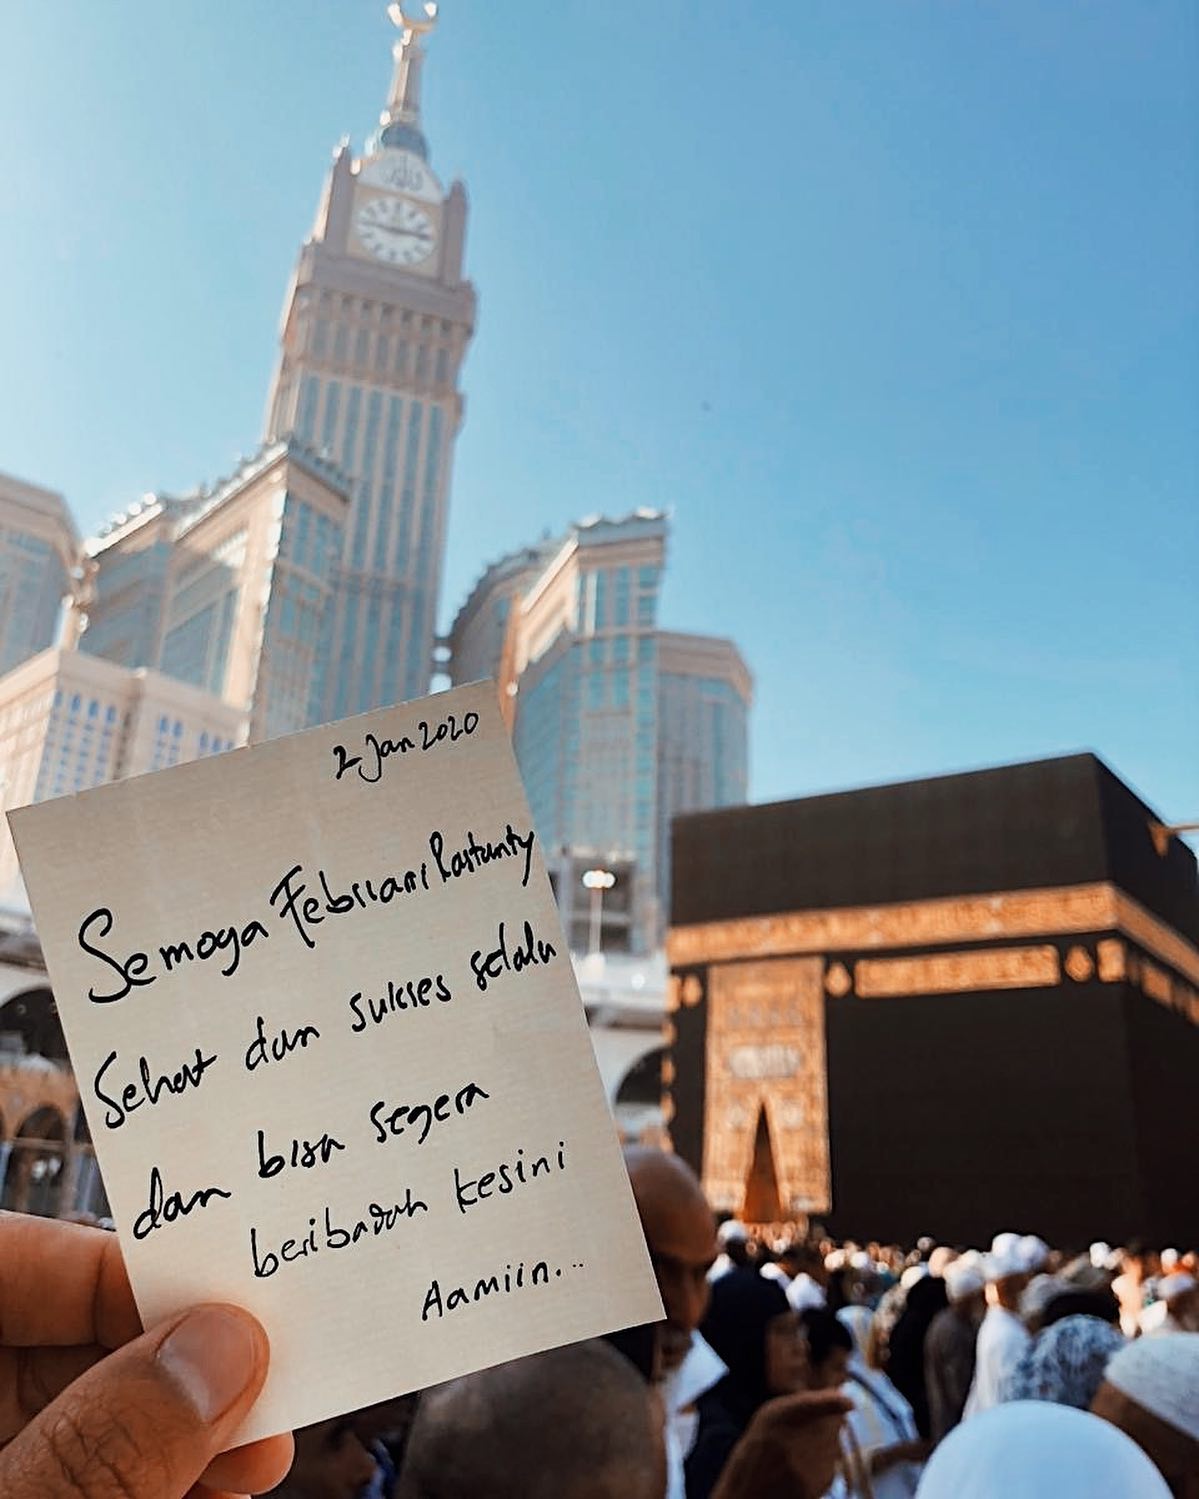 2 Jan 2020
Semoga Febriani Rastanty
Sehat dan sukses selalu
dan bisa segera
beribadah kesini
Aamiin...